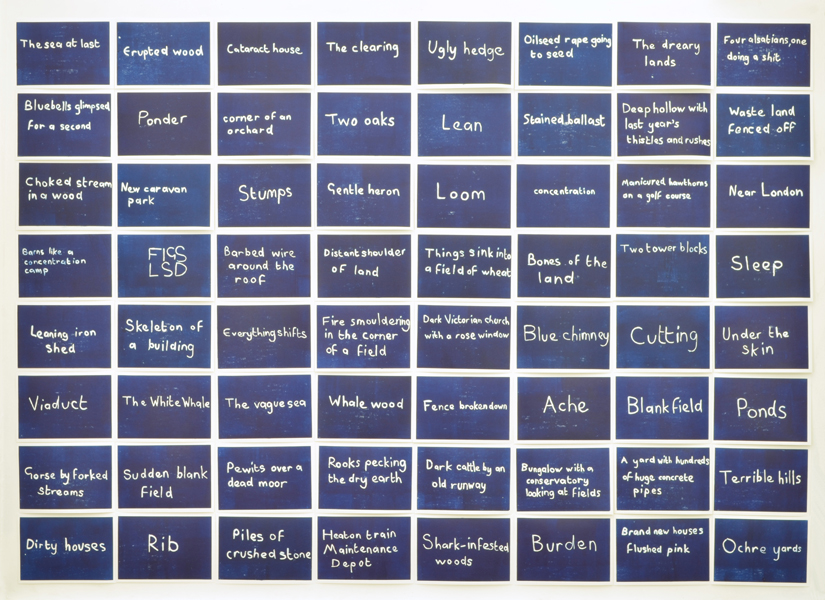 The sea at last
Erupted wood
Cataract house
The clearing
Ugly hedge
Oilseed rape going
to seed
The dreary
lands
Four alsatians, one
doing a shit
Bluebells glimpsed
for a second
Ponder
corner of an
orchard
Two oaks
Lean
Stained ballast
Deep hollow with
last year's
thistles and rushes
Waste land
fenced off
Choked stream
in a wood
New caravan
park
Stumps
Gentle heron
Loom
concentration
Manicured hawthorns
on a golf course
Near London
Barns like a
concentration
camp
FIGS
LSD
Barbed wire
around the
roof
Distant shoulder
of land
Things sink into
a field of wheat
Bones of the
land
Two tower blocks
Sleep
Leaning iron
shed
Skeleton of
a building
Everything shifts
Fire smouldering
in the corner
of a field
Dark Victorian church
with a rose window
Blue chimney
Cutting
Under the
skin
Viaduct
The White Whale
The vague sea
Whale wood
Fence broken down
Ache
Blank field
Ponds
Gorse by forked
streams
Sudden blank
field
Pewits over a
dead moor
Rooks pecking
the dry earth
Dark cattle by an
old runway
Bungalow with a
conservatory
looking at fields
A yard with hundreds
of huge concrete
pipes
Terrible hills
Dirty houses
Rib
Piles of
crushed stone
Heaton train
Maintenance
Depot
Shark-infested
woods
Burden
Brand new houses
flushed pink
Ochre yards